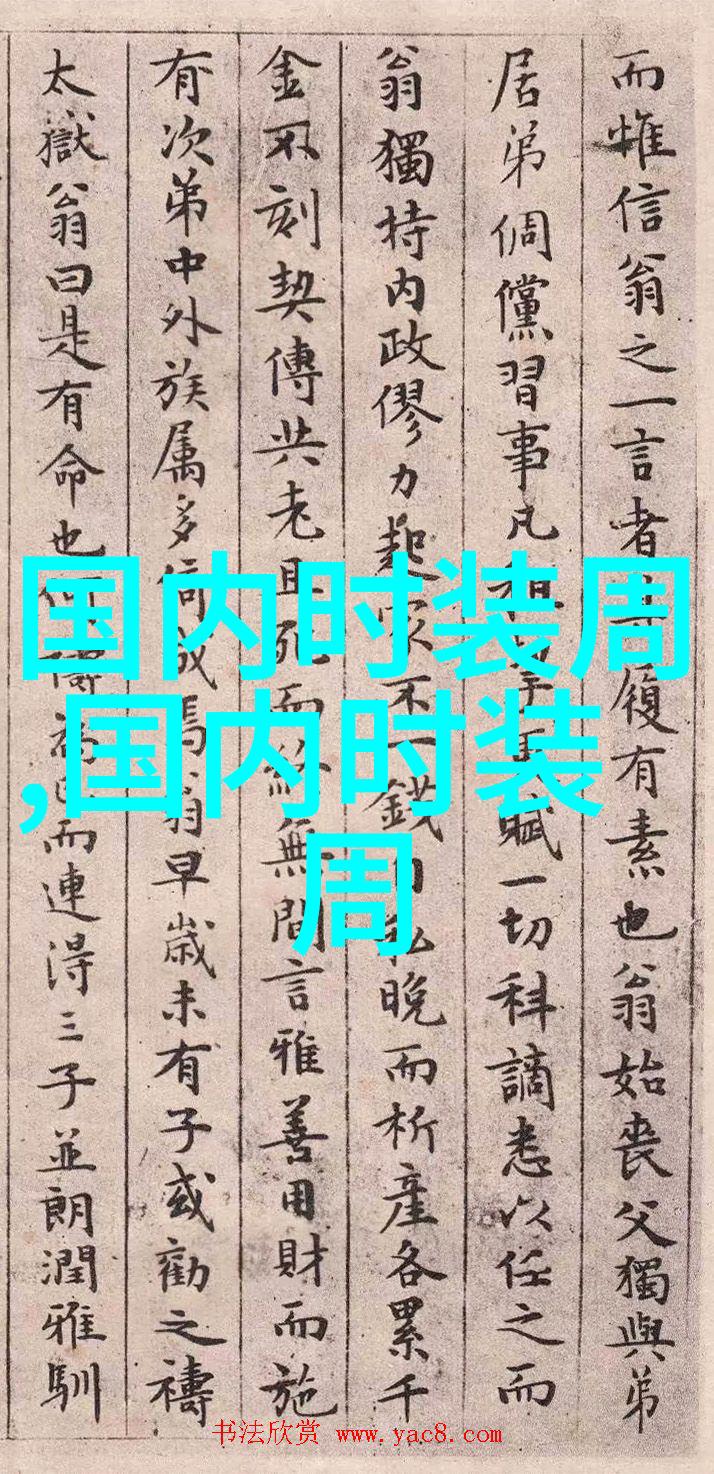 而惟信翁之一言者履有素也翁始喪父獨與弟
居弟倜儻習事凡賦一切科謫悉以任之而
翁獨持内政僇力起不一錢私晚而析產各累千
金不刻契傳共老且死而終無間言雅善用財而施
有次弟中外族属多倚成焉翁早歲未有子或勸之禱
太嶽翁曰是有命也何禱為已而連得三子並朗潤雅馴
国内时装周
,国内时装
周
书法欣赏 www.yac8.com